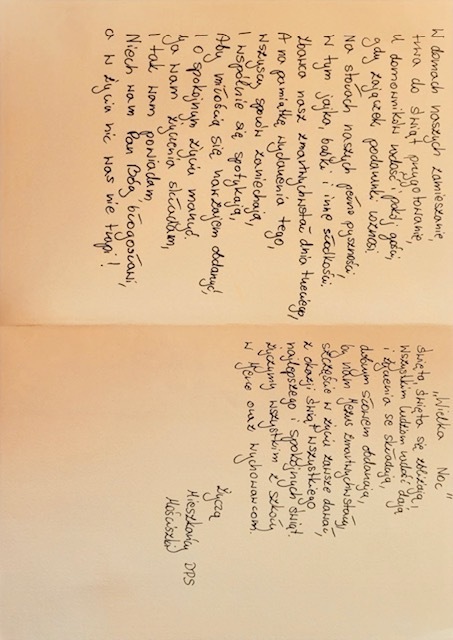 W domach naszych zamieszanie,
trwa do świąt przygotowanie
U domowników widać pokój gości,
gdy zajączek podarunki wznosi
Na stołach naszych pełno pyszności,
W tym jajka, babki i inne słodkości,
Zbawca nasz zmartwychwstał dnia trzeciego,
A na pamiątkę wydarzenia tego,
wszyscy sporów zaniechają,
I wspólnie się spotykają,
Aby miłością się nawzajem obdarzyć,
I o spokojnym życiu marzyć.
Ja wam życzenia składam,
I tak wam powiadam,
Niech wam Pan Bóg błogosławi,
a w życiu nic was nie trapi!
„Wielka Noc”
Święta święta się zbliżają,
wszystkim ludziom radość dają
i życzenia se składają,
dobrym słowem obdarzają,
by nam Jezus zmartwychwstały,
szczęście w życiu zawsze dawał,
z okazji świąt wszystkiego
najlepszego i spokojnych świąt.
życzymy wszystkim z szkoły
w oraz wychowawcom.
Życzą
Mieszkańcy DPS
Mościszki